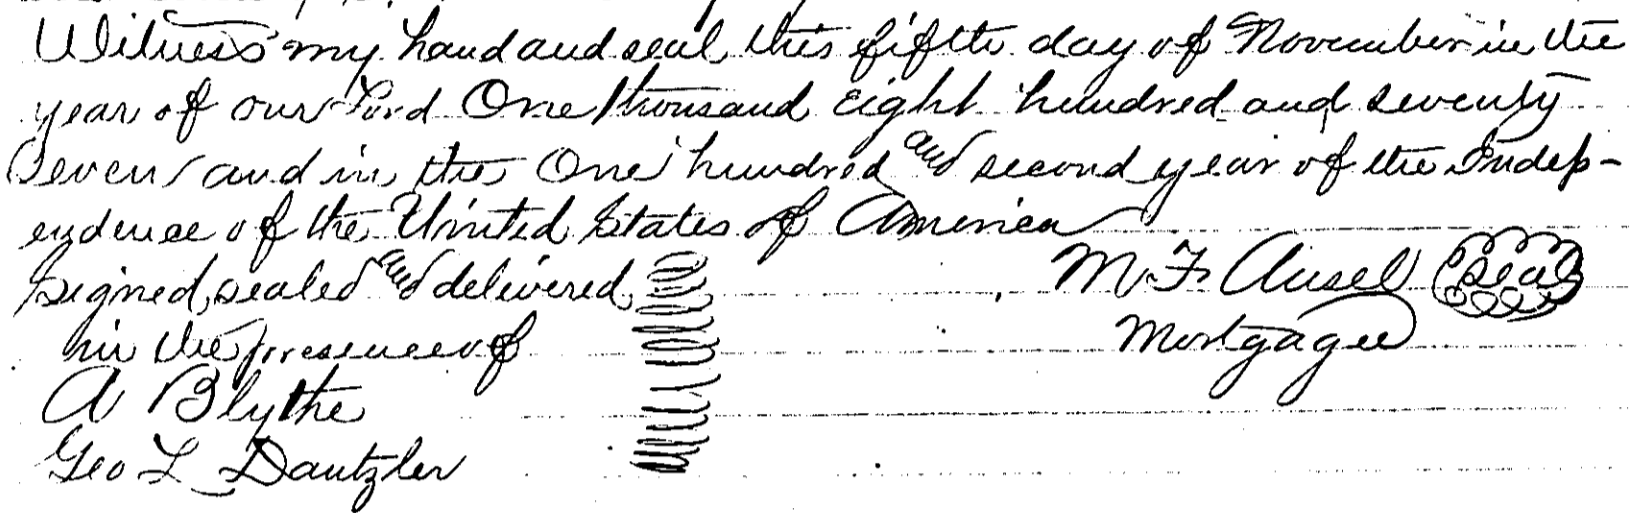 Witness my hand and seal this fifth day of November in the
year of our Lord One thousand eight hundred and seventy
Seven and in the One hundred and second year of the Indep-
endence of the United States of America
Signed, sealed and delivered M. F. Ansel Seal
in the presence of Mortgagee
A Blythe
Geo L Dantzler